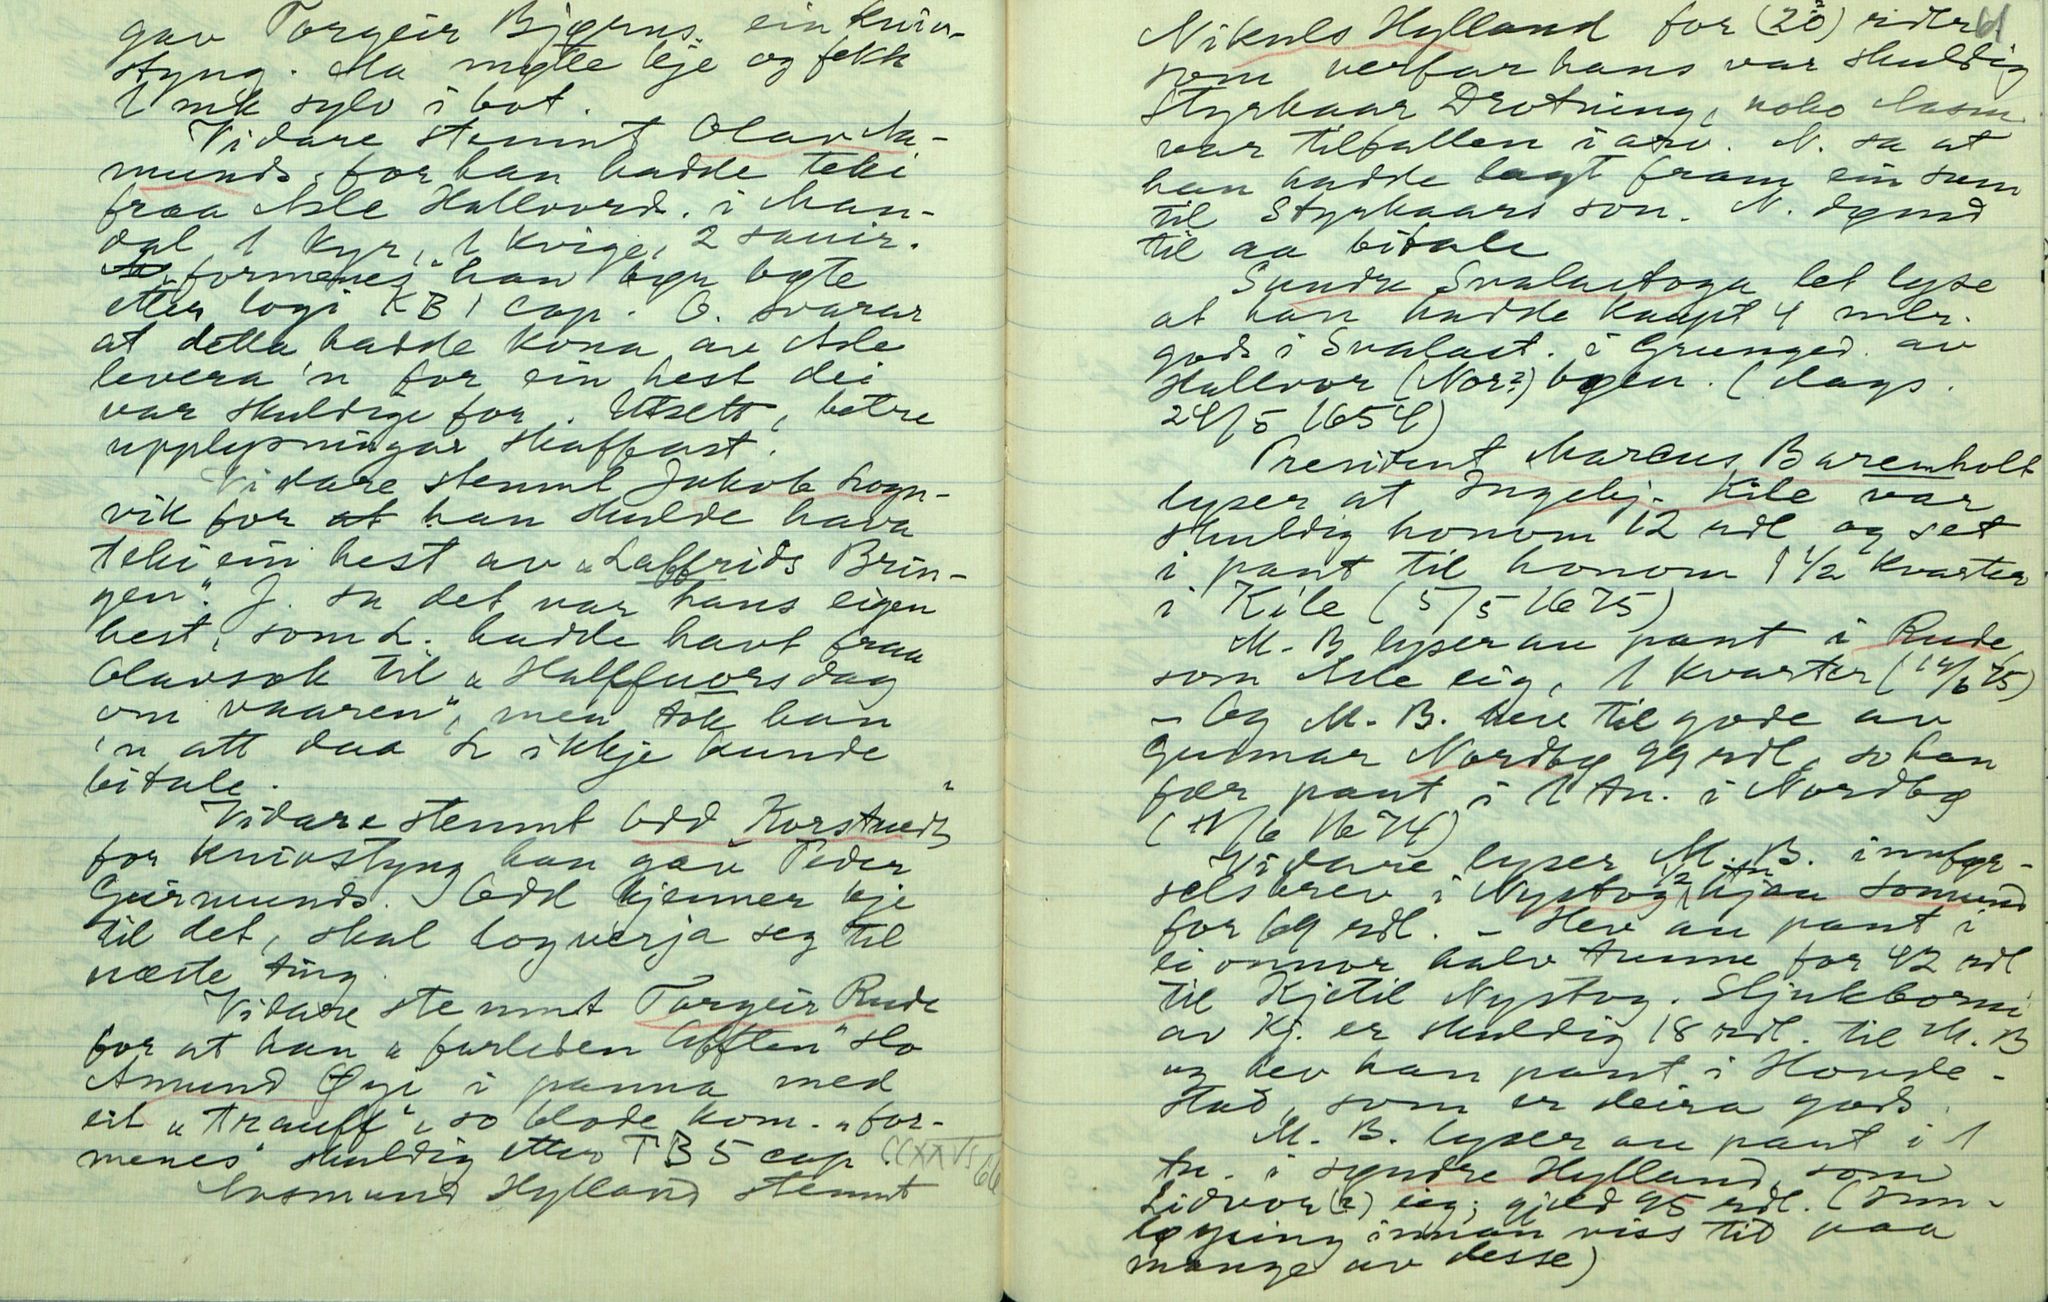 gav Torgeir Bjørns. ein kniv-
styng. Aa møtte ikje og fekk
1 mk sylv i bot.
Vidare stemnt Olav Aa-
munds. for han hadde teki
fraa Asle Hallvord. i Man-
dal 1 kyr, 1 kvige, 2 sauir.
"formenes" han bør bøte
etter logi KB 1 cap. O. svarar
at detta hadde kona av Asle
levera 'n for ein hest dei
var skuldige for. Utsett, betre
upplysningar skaffast.
Vidare stemnt Jakob Logn-
vik for at han skulde hava
teki ein hest av "Laffrids Brin-
gen". J. sa det var hans eigen
hest, som L. hadde havt fraa
Olavsok til "Halffuorsdag
om vaaren", men tok han
'n att daa L ikkje kunde
bitale.
Vidare stemnt Odd Korstueds
for knivstyng han gav Peder
Geirmunds. Odd kjenner ikje
til det, skal logverja seg til
næste ting.
Vidare stemnt Torgeir Rude
for at han "forleden Afften" slo
Amund Øyi i panna med
eit "Krauff", so blode kom. "for-
menes" skuldig etter TB 5 cap.
CCXXVI 66
Aasmund Hylland stemnt
61
Nikuls Hylland for (20?) ridlr
som verfar hans var skuldig
Styrkaar Drotning, noko Aasm
var tilfallen i arv. N. sa at
han hadde lagt fram ein sum
til Styrkaars son. N. dømd
til aa bitale
Sundre Svalastoga let lyse
at han hadde kaupt 4 mlr.
gods i Svalast. i Grunged. av
Hallvor (Nor?) bøen. (dags.
24/5 1654)
President Marcus Barenholt
lyser at Ingebj. Kile var
skuldig honom 12 rdl og set
i pant til honom 1 1/2 kvarter
i Kile (5/5 1675)
M. B lyser au pant i Rude,
som Asle eig, 1 kvarter (14/6 75)
– Og M. B. hev til gode av
Gudmar Nordbø 99 rdl, so han
fær pant i 1 tn. i Nordbø
(11/6 1674)
Vidare lyser M. B. innfør-
selsbrev i 1/2 tn Nystog, hjaa Somund
for 69 rdl. – Hev au pant i
ei onnor halv tunne for 42 rdl
til Kjetil Nystog. Stjukborni
av Kj. er skuldig 18 rdl. til M. B
og hev han pant i Hovde-
stad, som er deira gods.
M. B. lyser au pant i 1
tn. i syndre Hylland, som
Lidvor (?) eig; gjeld 95 rdl. (Inn-
løysing innan viss tid paa
mange av desse)